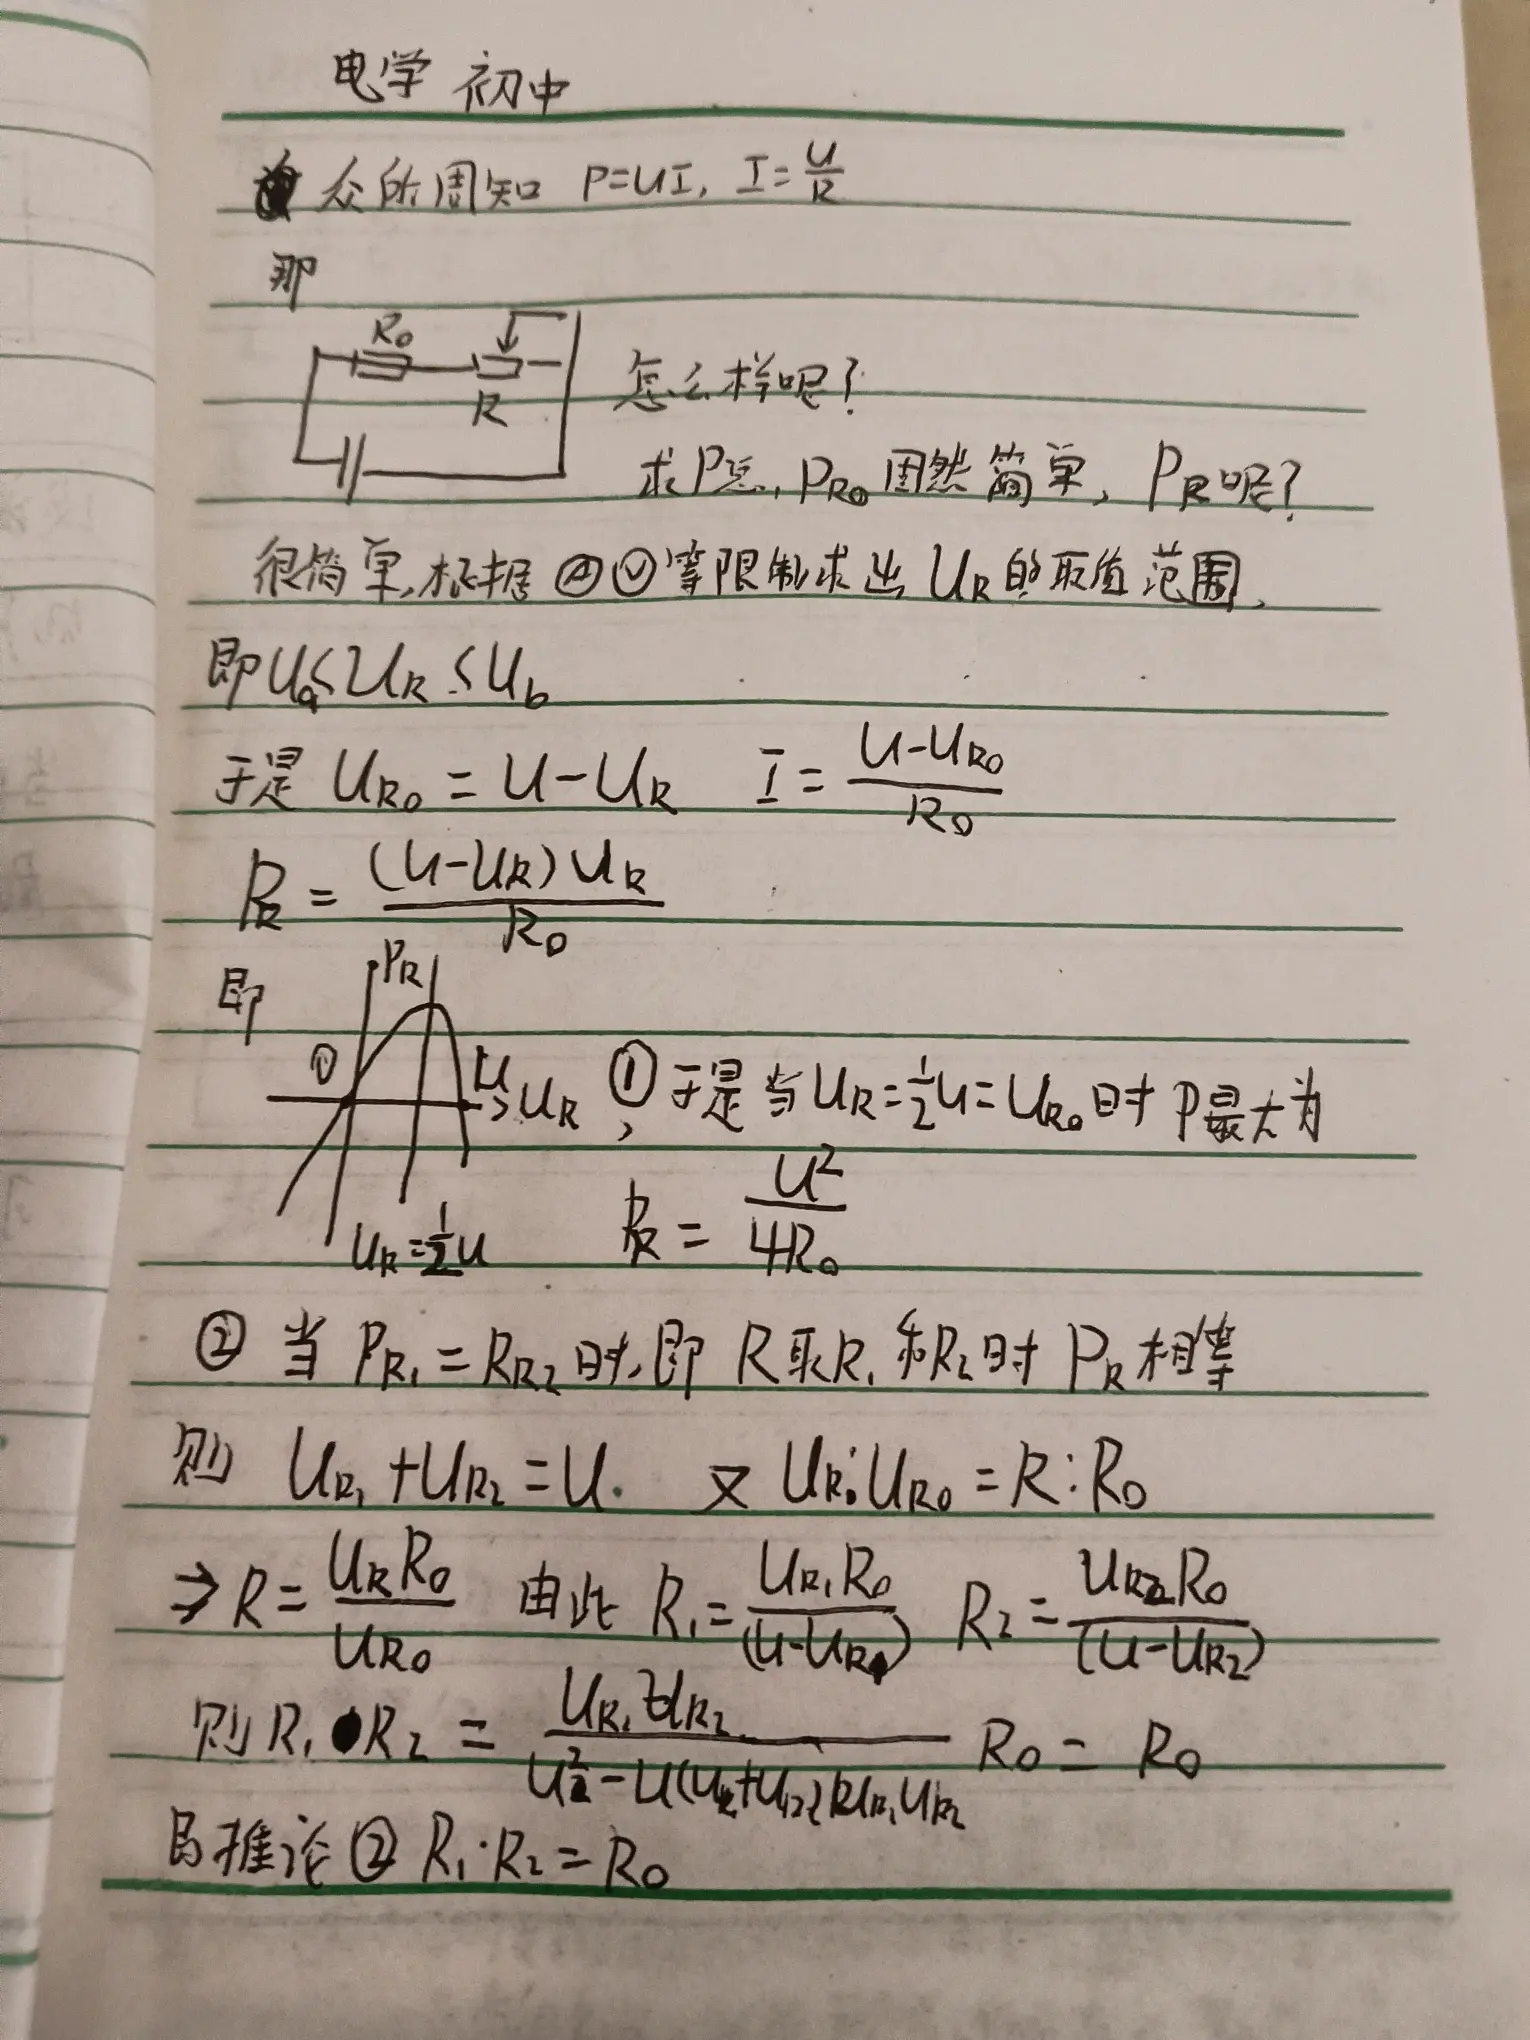 电学 初中
众所周知 P=UI, I=U/R
那
R₀
R
怎么样呢?
求P总, P_R₀ 固然简单, P_R呢?
很简单,根据ⒶⓋ等限制求出 U_R的取值范围,
即Uₐ≤U_R≤U_b
于是 U_R₀ = U-U_R I = (U-U_R₀)/R₀
P_R = (U-U_R)U_R/R₀
即
P_R
0
U
U_R
U_R=½U
, ①于是当U_R=½U=U_R₀时 P最大为
P_R = U²/4R₀
② 当 P_R₁ = R_R₂时,即 R取R₁和R₂时 P_R相等
则 U_R₁+U_R₂=U. 又 U_R:U_R₀=R:R₀
⇒R=U_R R₀/U_R₀ 由此 R₁=U_R₁R₀/(U-U_R₁) R₂=U_R₂R₀/(U-U_R₂)
则R₁·R₂ = R₀= R₀
推论② R₁·R₂=R₀